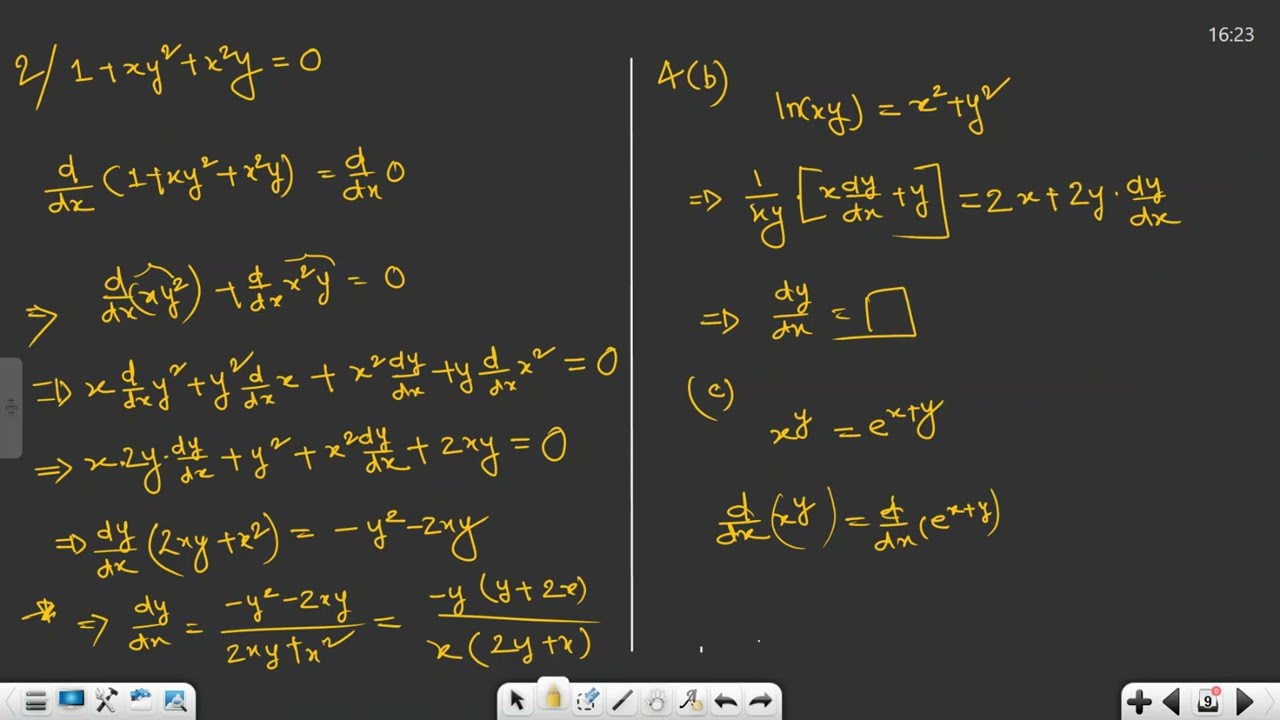 16:23
2/ 1+xy²+x²y=0
d/dx (1+xy²+x²y) = d/dx 0
⇒ d/dx(xy²) + d/dx x²y = 0
⇒ x d/dx y² + y² d/dx x + x² dy/dx + y d/dx x² = 0
⇒ x.2y.dy/dx + y² + x² dy/dx + 2xy = 0
⇒ dy/dx (2xy+x²) = -y²-2xy
* ⇒ dy/dx = (-y²-2xy)/(2xy+x²) = (-y(y+2x))/(x(2y+x))
4(b)
ln(xy) = x²+y²
⇒ 1/xy [x dy/dx + y] = 2x+2y.dy/dx
⇒ dy/dx = □
(c)
xy = e^(x+y)
d/dx (xy) = d/dx (e^(x+y))
9